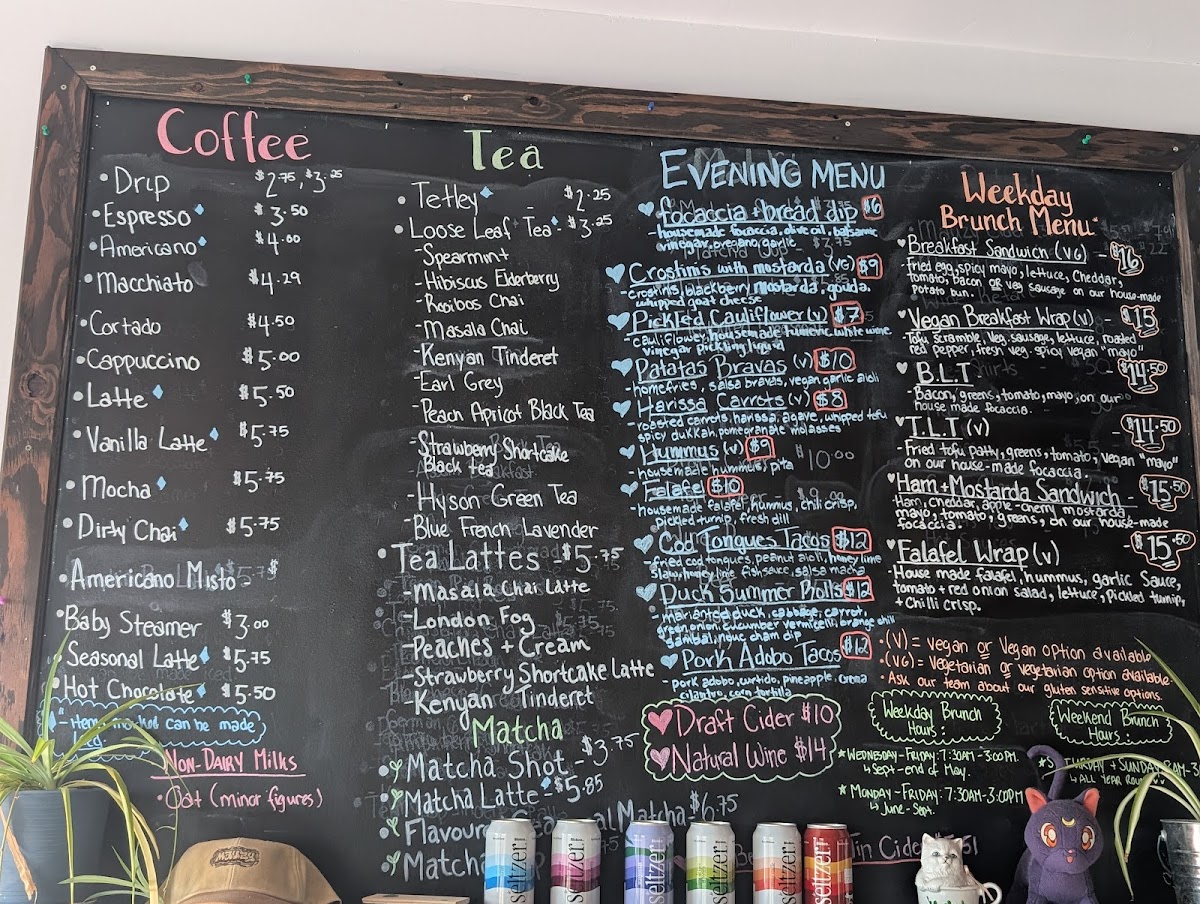 Coffee
• Drip $2.75, $3.25
• Espresso $3.50
• Americano $4.00
• Macchiato $4.29
• Cortado $4.50
• Cappuccino $5.00
• Latte $5.50
• Vanilla Latte $5.75
• Mocha $5.75
• Dirty Chai $5.75
• Americano Misto - $
• Baby Steamer $3.00
• Seasonal Latte $5.75
• Hot Chocolate $5.50
marked can be made
Iced
Non-Dairy Milks
• Oat (minor figures)
Tea
• Tetley - $2.25
• Loose Leaf Tea - $3.25
- Spearmint
- Hibiscus Elderberry
- Rooibos Chai
- Masala Chai
- Kenyan Tinderet
- Earl Grey
- Peach Apricot Black Tea
- Strawberry Shortcake
Black tea
- Hyson Green Tea
- Blue French Lavender
• Tea Lattes - $5.75
- Masala Chai Latte
- London Fog
- Peaches + Cream
- Strawberry Shortcake Latte
- Kenyan Tinderet
Matcha
• Matcha Shot - $3.75
• Matcha Latte - $5.85
• Flavoured Matcha - $6.75
• Matcha
Evening Menu
Focaccia + bread dip $6
- housemade focaccia, olive oil, balsamic
vinegar, oregano, garlic
Crostinis with mostarda (VG) $9
- crostinis, blackberry mostarda, gouda,
whipped goat cheese
Pickled Cauliflower (v) $7
- cauliflower, housemade tumeric white wine
vinegar pickling liquid
Patatas Bravas (v) $10
- homefries, salsa bravas, vegan garlic aioli
Harissa Carrots (v) $8
- roasted carrots, harissa, agave, whipped tofu
spicy dukkah, pomegranate molasses
Hummus (v) $9
- housemade hummus, pita
Falafel $10
- housemade falafel, hummus, chili crisp,
pickled turnip, fresh dill
Cod Tongues Tacos $12
- fried cod tongues, peanut aioli, honey lime
slaw, honey lime fish sauce, salsa macha
Duck Summer Rolls $12
- mariented duck, cabbage, carrot,
green onion, cucumber vermicelli, orange chili
sambal, nouc cham dip
Pork Adobo Tacos $12
- pork adobo, curtido, pineapple, crema
cilantro, corn tortilla
Draft Cider $10
Natural Wine $14
Weekday
Brunch Menu*
Breakfast Sandwich (VG) - $16
Fried egg, spicy mayo, lettuce, Cheddar,
Tomato, bacon, or veg sausage on our house-made
potato bun.
Vegan Breakfast Wrap (v) - $15
Tofu scramble, veg. sausage, lettuce, roasted
red pepper, fresh veg. spicy vegan "mayo"
B.L.T - $14.50
Bacon, greens, tomato, mayo, on our
house made focaccia.
T.L.T (v) - $14.50
- Fried tofu patty, greens, tomato, vegan "mayo"
on our house-made focaccia.
Ham + Mostarda Sandwich - $15.50
Ham, cheddar, apple-cherry mostarda,
mayo, tomato, greens, on our house-made
focaccia.
Falafel Wrap (v) - $15.50
House made falafel, hummus, garlic sauce,
tomato + red onion salad, lettuce, pickled turnip,
+ Chilli crisp.
• (V) = vegan or Vegan option available
• (VG) = Vegetarian or vegetarian option available.
• Ask our team about our gluten sensitive options.
Weekday Brunch
Hours:
* Wednesday - Friday: 7:30AM - 3:00PM.
↳ Sept - end of May.
* Monday - Friday: 7:30AM - 3:00PM
↳ June - Sept.
Weekend Brunch
Hours:
+ Sunday
↳ All Year
Tin Cider
seltzer
seltzer
seltzer
seltzer
seltzer
seltzer